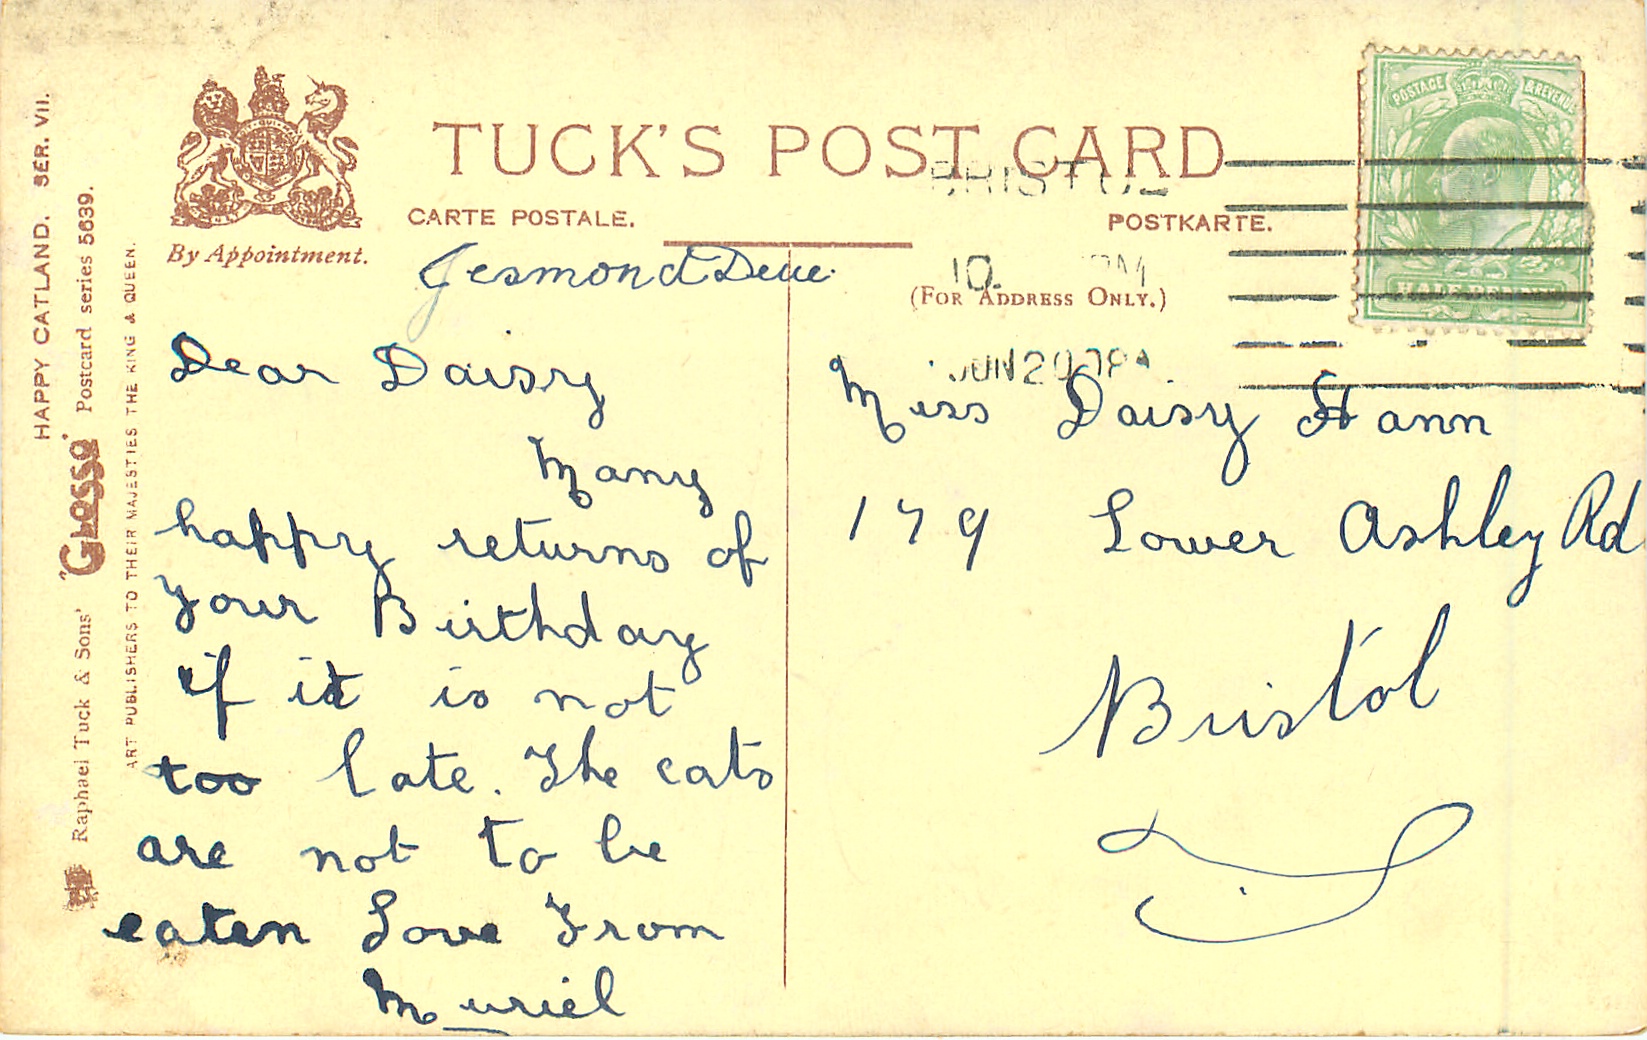 HAPPY CATLAND. SER. VII.
Raphael Tuck & Sons' "GLOSSO" Postcard series 5639.
ART PUBLISHERS TO THEIR MAJESTIES THE KING & QUEEN.
By Appointment.
TUCK'S POST CARD
CARTE POSTALE.
POSTKARTE.
(FOR ADDRESS ONLY.)
POSTAGE & REVENUE
HALFPENNY
BRISTOL
10.
JUN 20
Jesmond Dene
Dear Daisy
Many
happy returns of
your Birthday
if it is not
too late. The cats
are not to be
eaten Love From
Muriel
Miss Daisy Hann
179 Lower Ashley Rd
Bristol